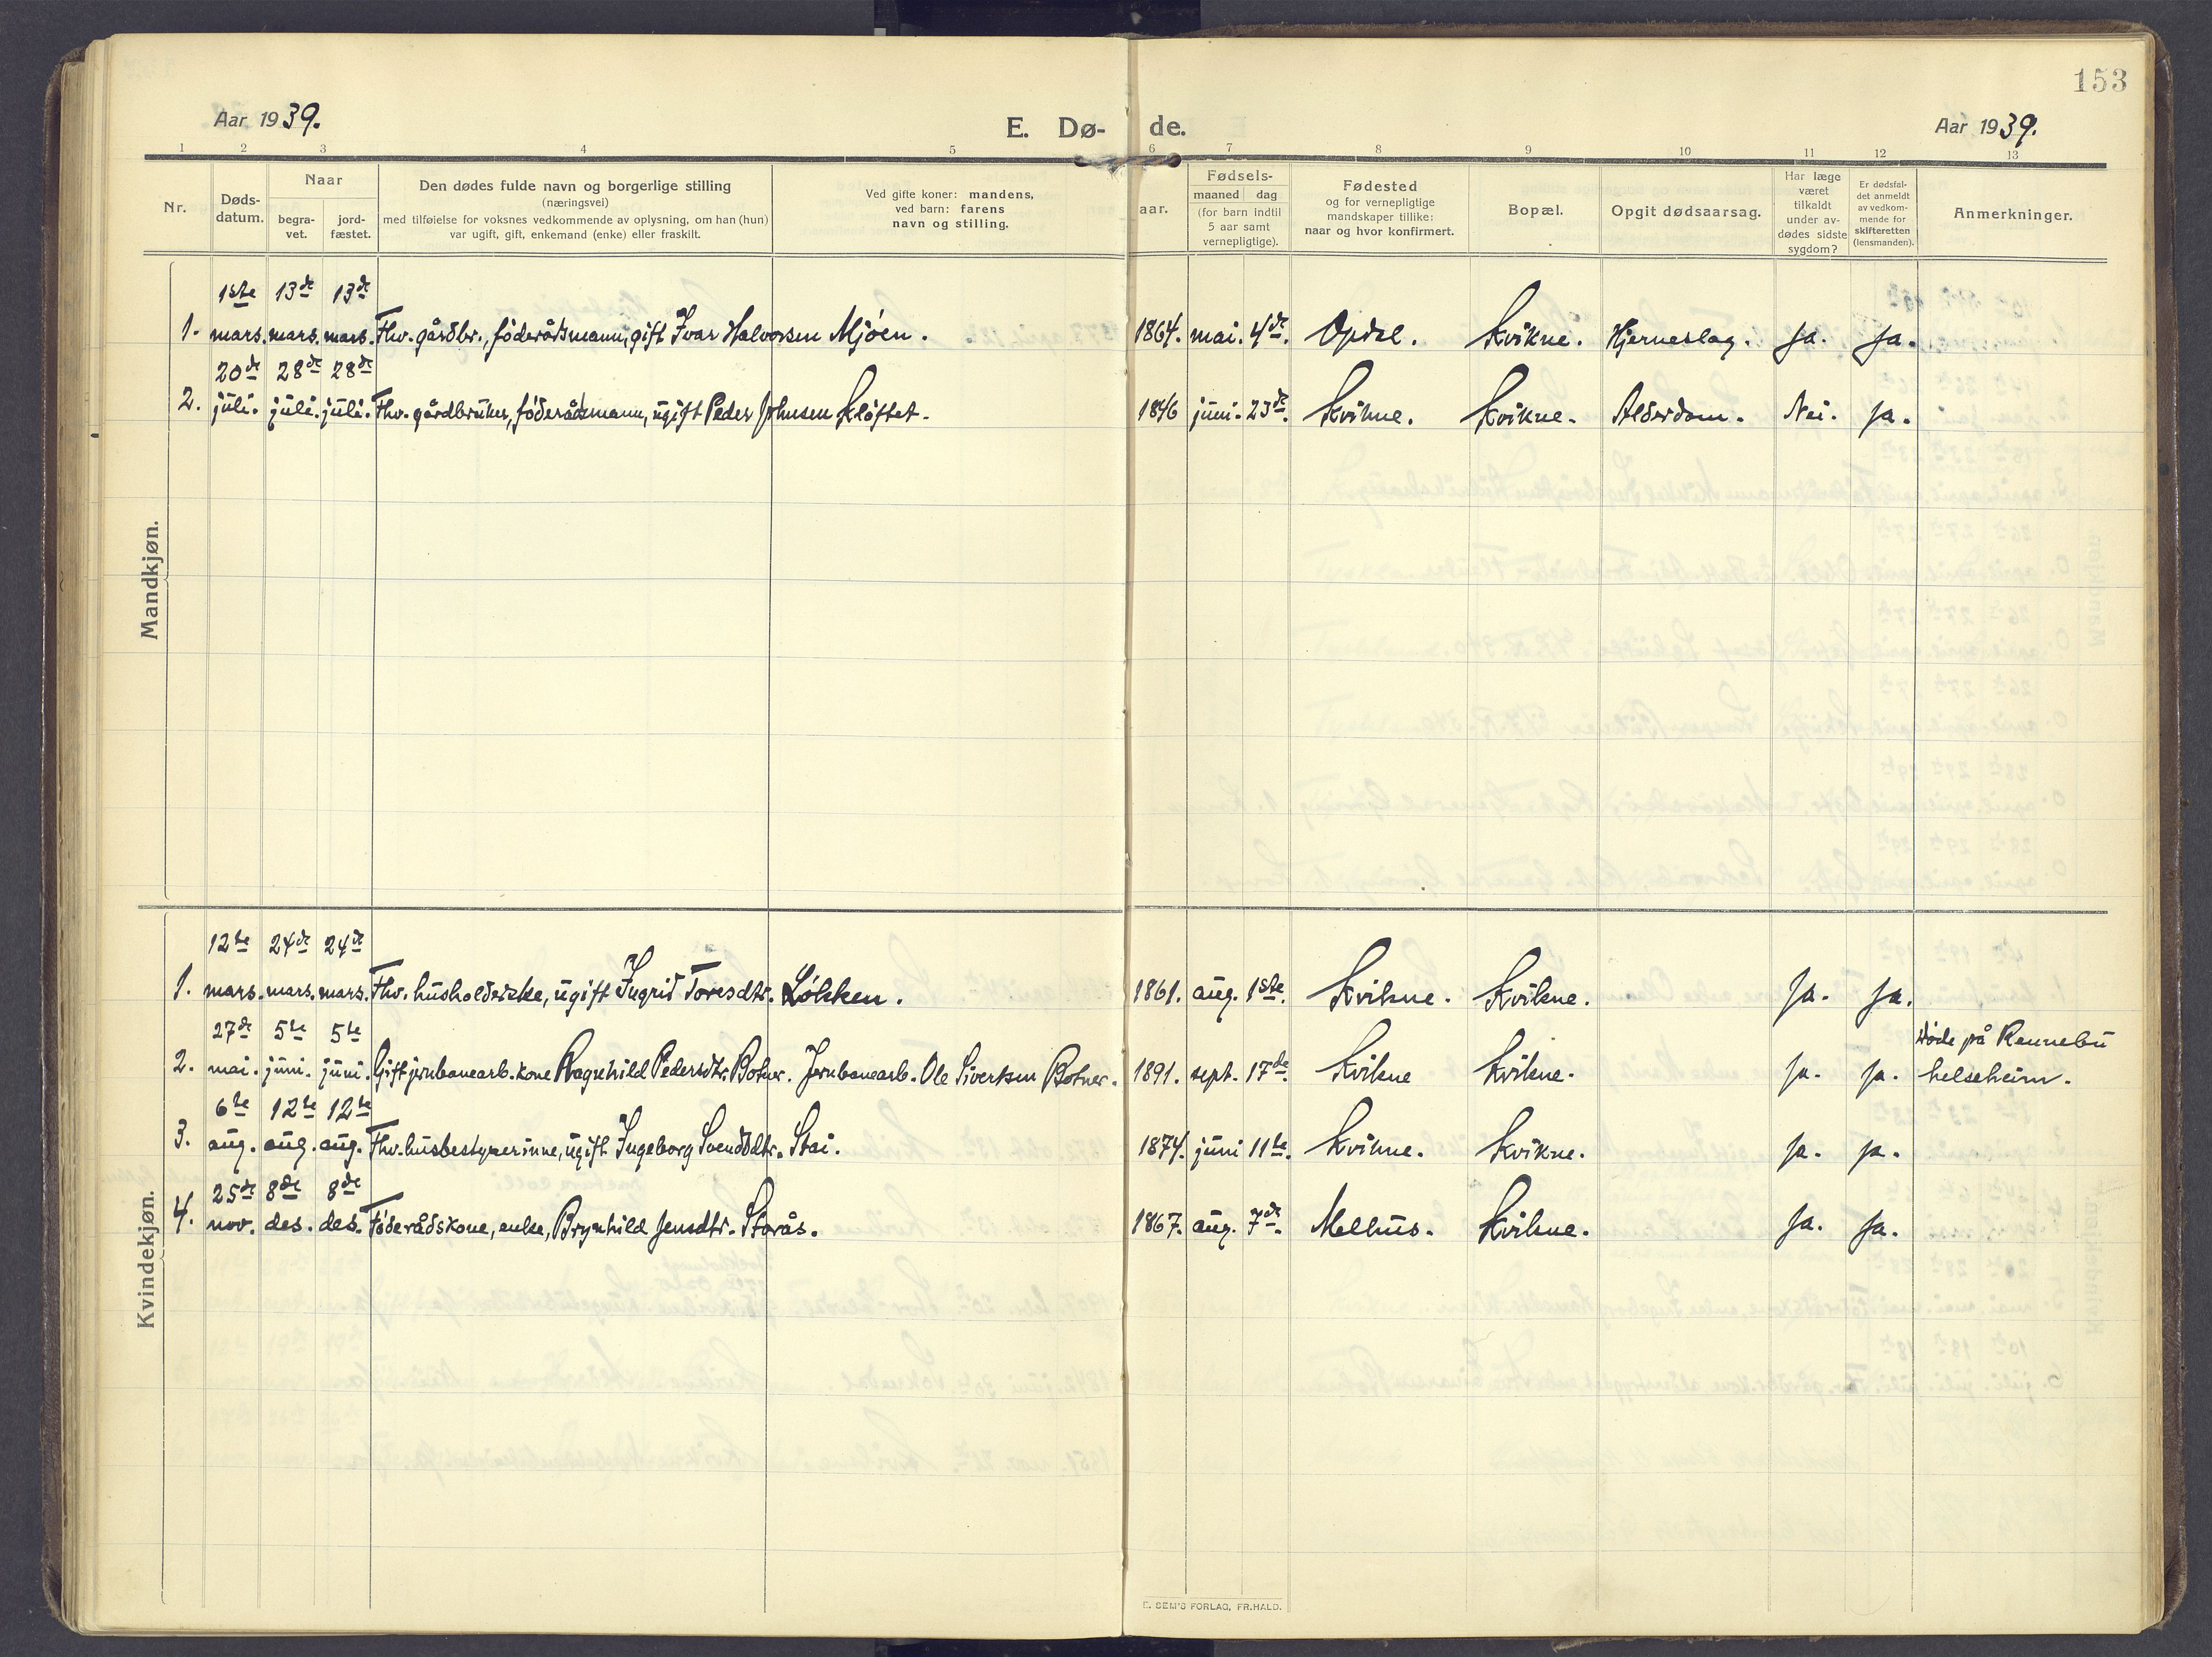 153
Aar 1939.
E. Dø- de.
Aar 1939.
1 2 3 4 5 6 7 8 9 10 11 12 13
Nr.
Døds-
datum.
Naar
begra-
vet.
jord-
fæstet.
Den dødes fulde navn og borgerlige stilling
(næringsvei)
med tilføielse for voksnes vedkommende av oplysning, om han (hun)
var ugift, gift, enkemand (enke) eller fraskilt.
Ved gifte koner: mandens,
ved barn: farens
navn og stilling.
aar.
Fødsels-
maaned dag
(for barn indtil
5 aar samt
vernepligtige).
Fødested
og for vernepligtige
mandskaper tillike:
naar og hvor konfirmert.
Bopæl.
Opgit dødsaarsag.
Har læge
været
tilkaldt
under av-
dødes sidste
sygdom?
Er dødsfal-
det anmeldt
av vedkom-
mende for
skifteretten
(lensmanden).
Anmerkninger.
Mandkjøn.
1ste 13de 13de
1. mars. mars. mars. Fhv. gårdbr., föderådsmann, gift Ivar Halvorsen Mjöen. 1864. mai. 4de. Opdal. Kvikne. Hjerneslag. Ja. Ja.
20de 28de 28de
2. juli. juli. juli. Fhv. gårdbruker, föderådsmann, ugift Peder Johnsen Kløftet. 1846 juni. 23de. Kvikne. Kvikne. Alderdom. Nei. Ja.
Kvindekjøn.
12te 24de 24de
1. mars. mars. mars. Fhv. husholderske, ugift Ingrid Toresdtr. Løkken. 1861. aug. 1ste. Kvikne. Kvikne. Ja. Ja.
27de 5te 5te
2. mai. juni. juni. Gift jernbanearb. kone Ragnhild Pedersdtr. Botner. Jernbanearb. Ole Sivertsen Botner. 1891. sept. 17de. Kvikne Kvikne. Ja. Ja. Døde på Rennebu
helseheim.
6te 12te 12te
3. aug. aug. aug. Fhv. husbestyrerinne, ugift Ingeborg Svendsdtr. Stai. 1874. juni 11te. Kvikne. Kvikne. Ja. Ja.
25de 8de 8de
4. nov. des. des. Föderådskone, enke, Brynhild Jensdtr. Storås. 1867. aug. 7de. Melhus. Kvikne. Ja. Ja.
E. SEM'S FORLAG, FR.HALD.